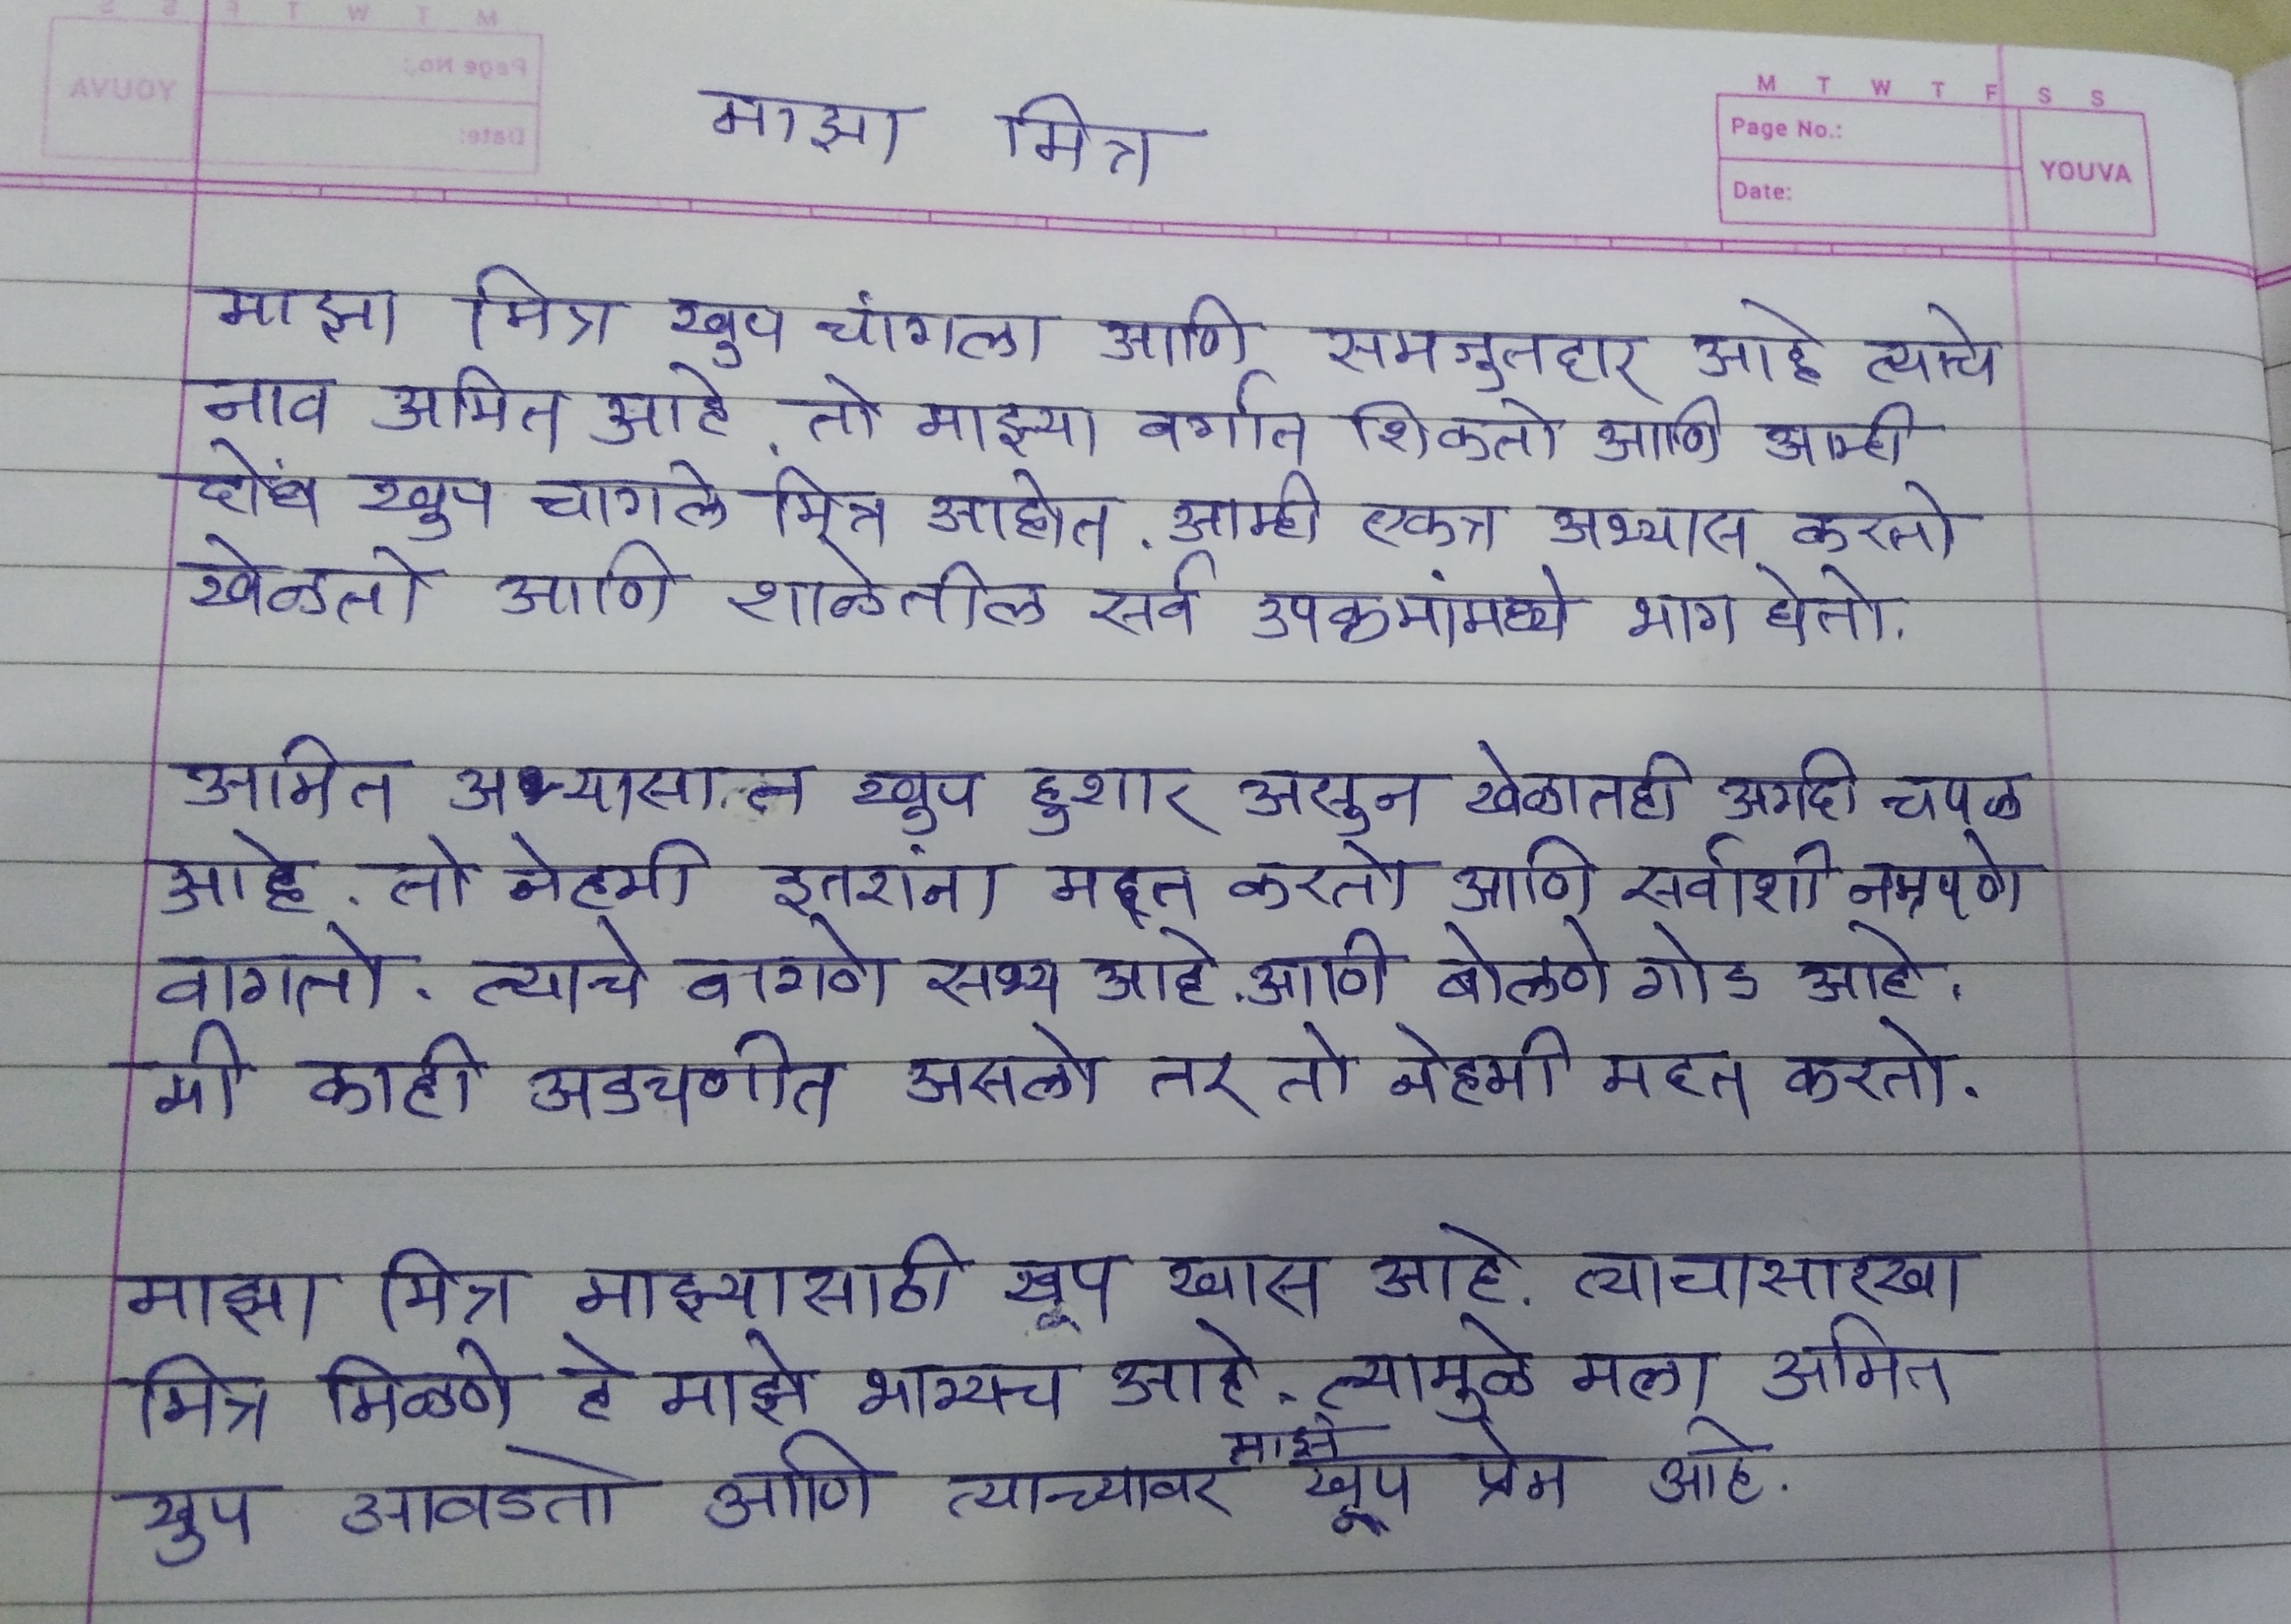 M T W T F S S
Page No.:
Date:
YOUVA
माझा मित्र
माझा मित्र खुप चांगला आणि समजुतदार आहे त्याचे
नाव अमित आहे. तो माझ्या वर्गात शिकतो आणि आम्ही
दोघं खुप चागले मित्र आहोत. आम्ही एकत्र अभ्यास करतो
खेळतो आणि शाळेतील सर्व उपक्रमांमध्ये भाग घेतो.
अमित अभ्यासात खुप हुशार असुन खेळातही अगदी चपळ
आहे. तो नेहमी इतरांना मदत करतो आणि सर्वाशी नम्रपणे
वागतो. त्याचे वागणे सभ्य आहे. आणि बोलणे गोड आहे.
मी काही अडचणीत असलो तर तो नेहमी मदत करतो.
माझा मित्र माझ्यासाठी खूप खास आहे. त्याचासारखा
मित्र मिळणे हे माझे भाग्यच आहे. त्यामुळे मला अमित
खुप आवडतो आणि त्याच्यावर माझे खूप प्रेम आहे.